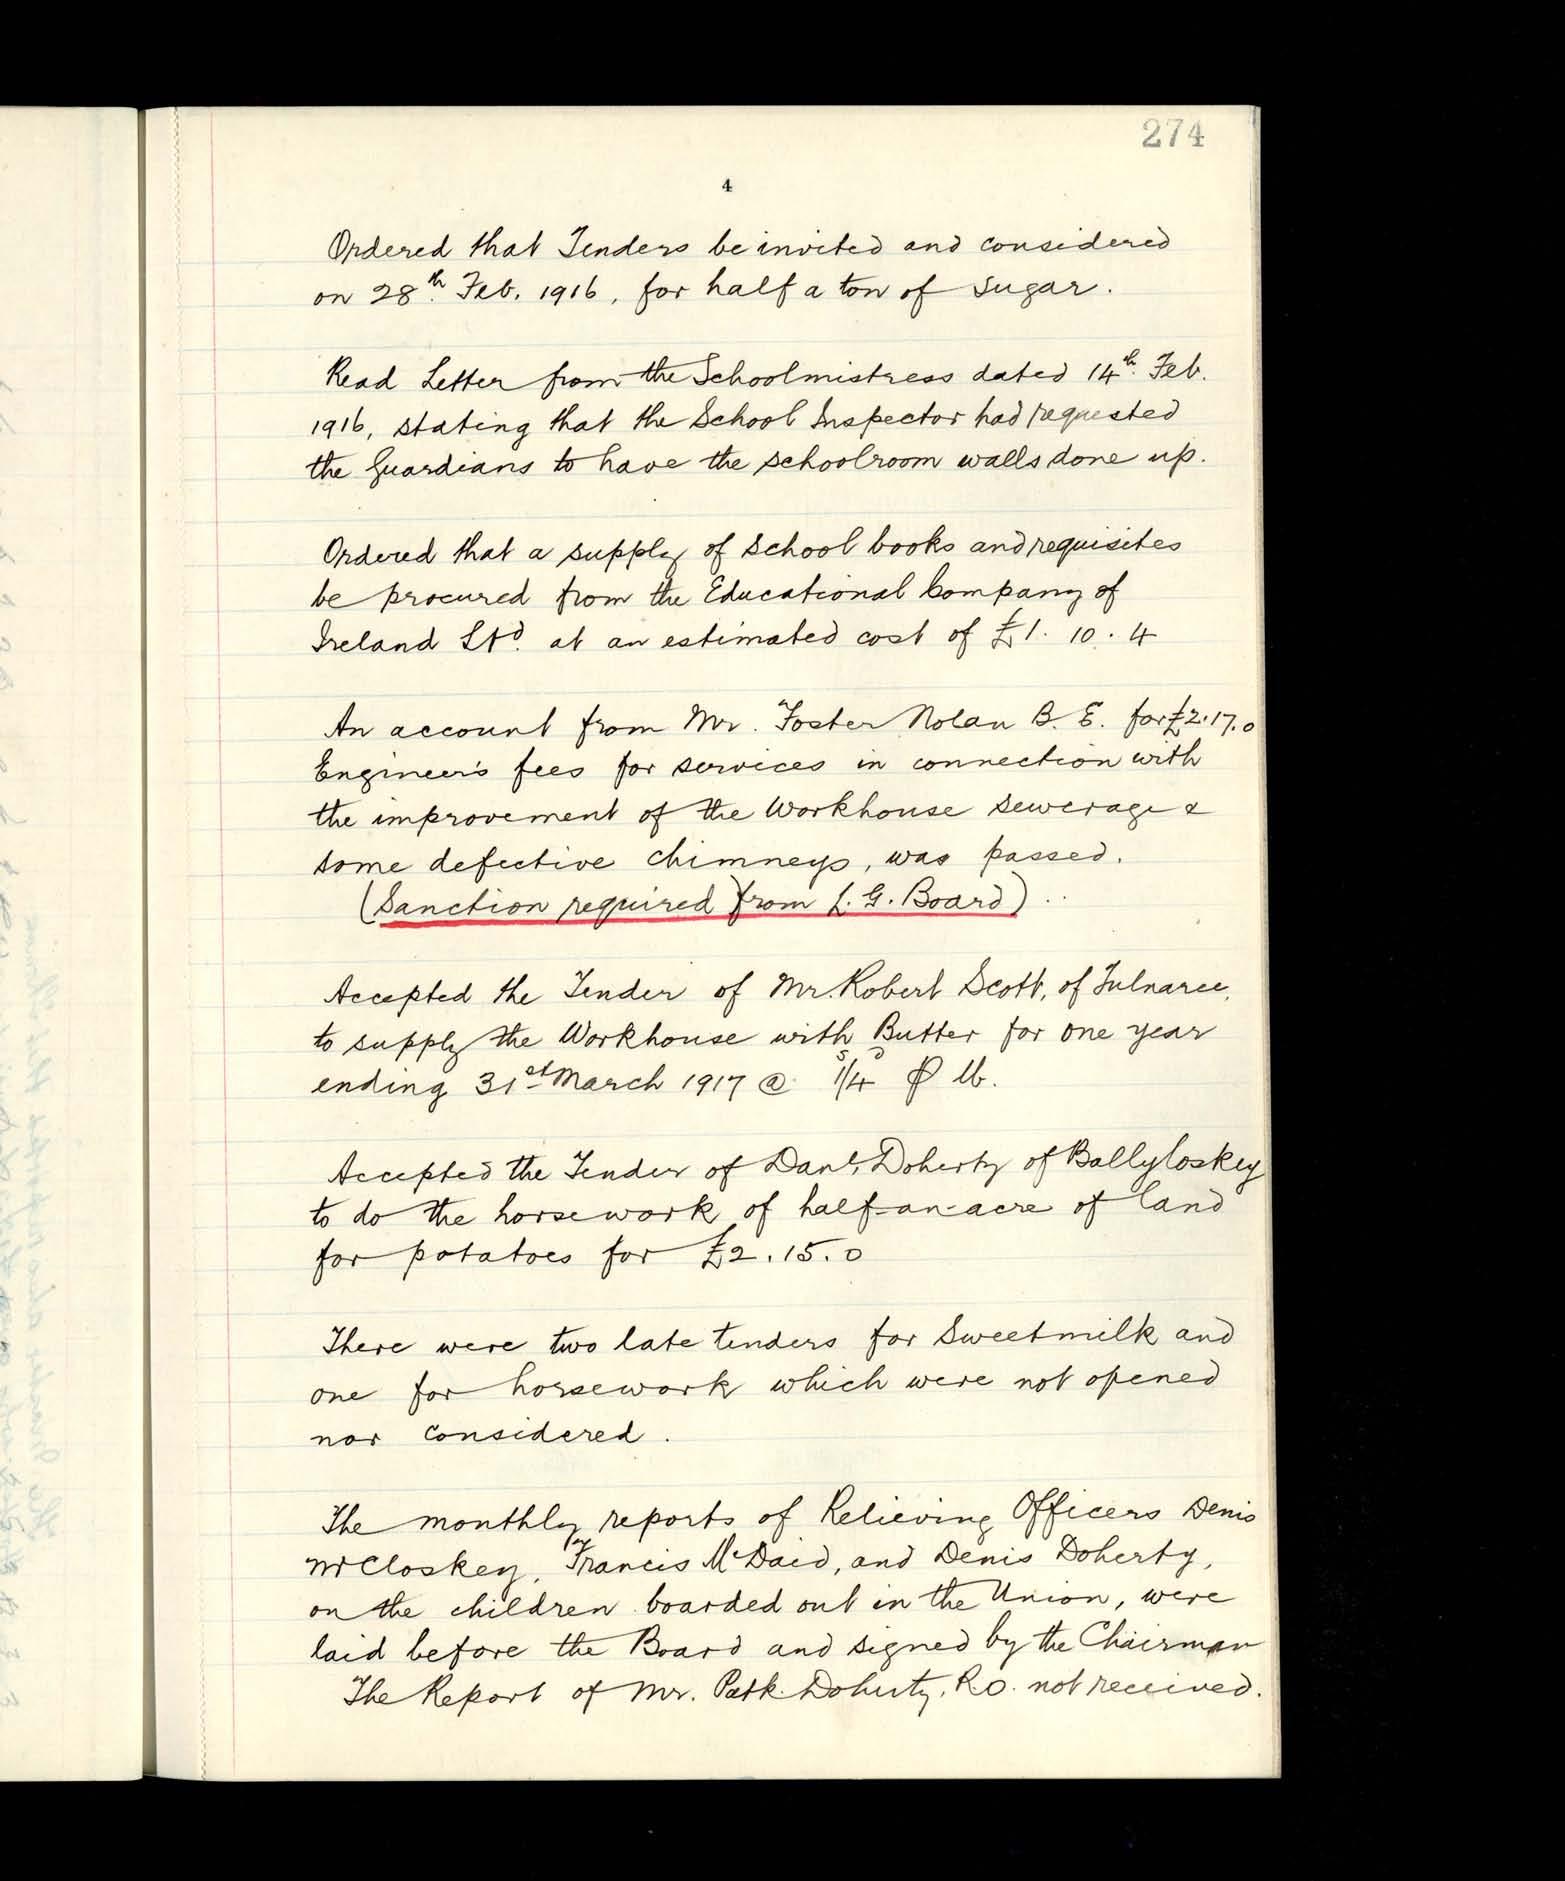 274
4
Ordered that Tenders be invited and considered
on 28th. Feb. 1916, for half a ton of sugar.
Read Letter from the Schoolmistress dated 14th. Feb.
1916, stating that the School Inspector had requested
the Guardians to have the schoolroom walls done up.
Ordered that a supply of school books and requisites
be procured from the Educational Company of
Ireland Ltd. at an estimated cost of £1. 10. 4
An account from Mr. Foster Nolan B. E. for £2.17.0
Engineer's fees for services in connection with
the improvement of the Workhouse sewerage &
some defective chimneys, was passed.
(Sanction required from L. G. Board)
Accepted the Tender of Mr. Robert Scott, of Tulnaree,
to supply the Workhouse with Butter for one year
ending 31st March 1917 @ 1s/4d ₽ lb.
Accepted the Tender of Danl. Doherty of Ballyloskey
to do the horsework of half-an-acre of land
for potatoes for £2.15.0
There were two late tenders for Sweetmilk and
one for horsework which were not opened
nor considered.
The monthly reports of Relieving Officers Denis
McCloskey, Francis McDaid, and Denis Doherty,
on the children boarded out in the Union, were
laid before the Board and signed by the Chairman
The Report of Mr. Patk. Doherty, R.O. not received.